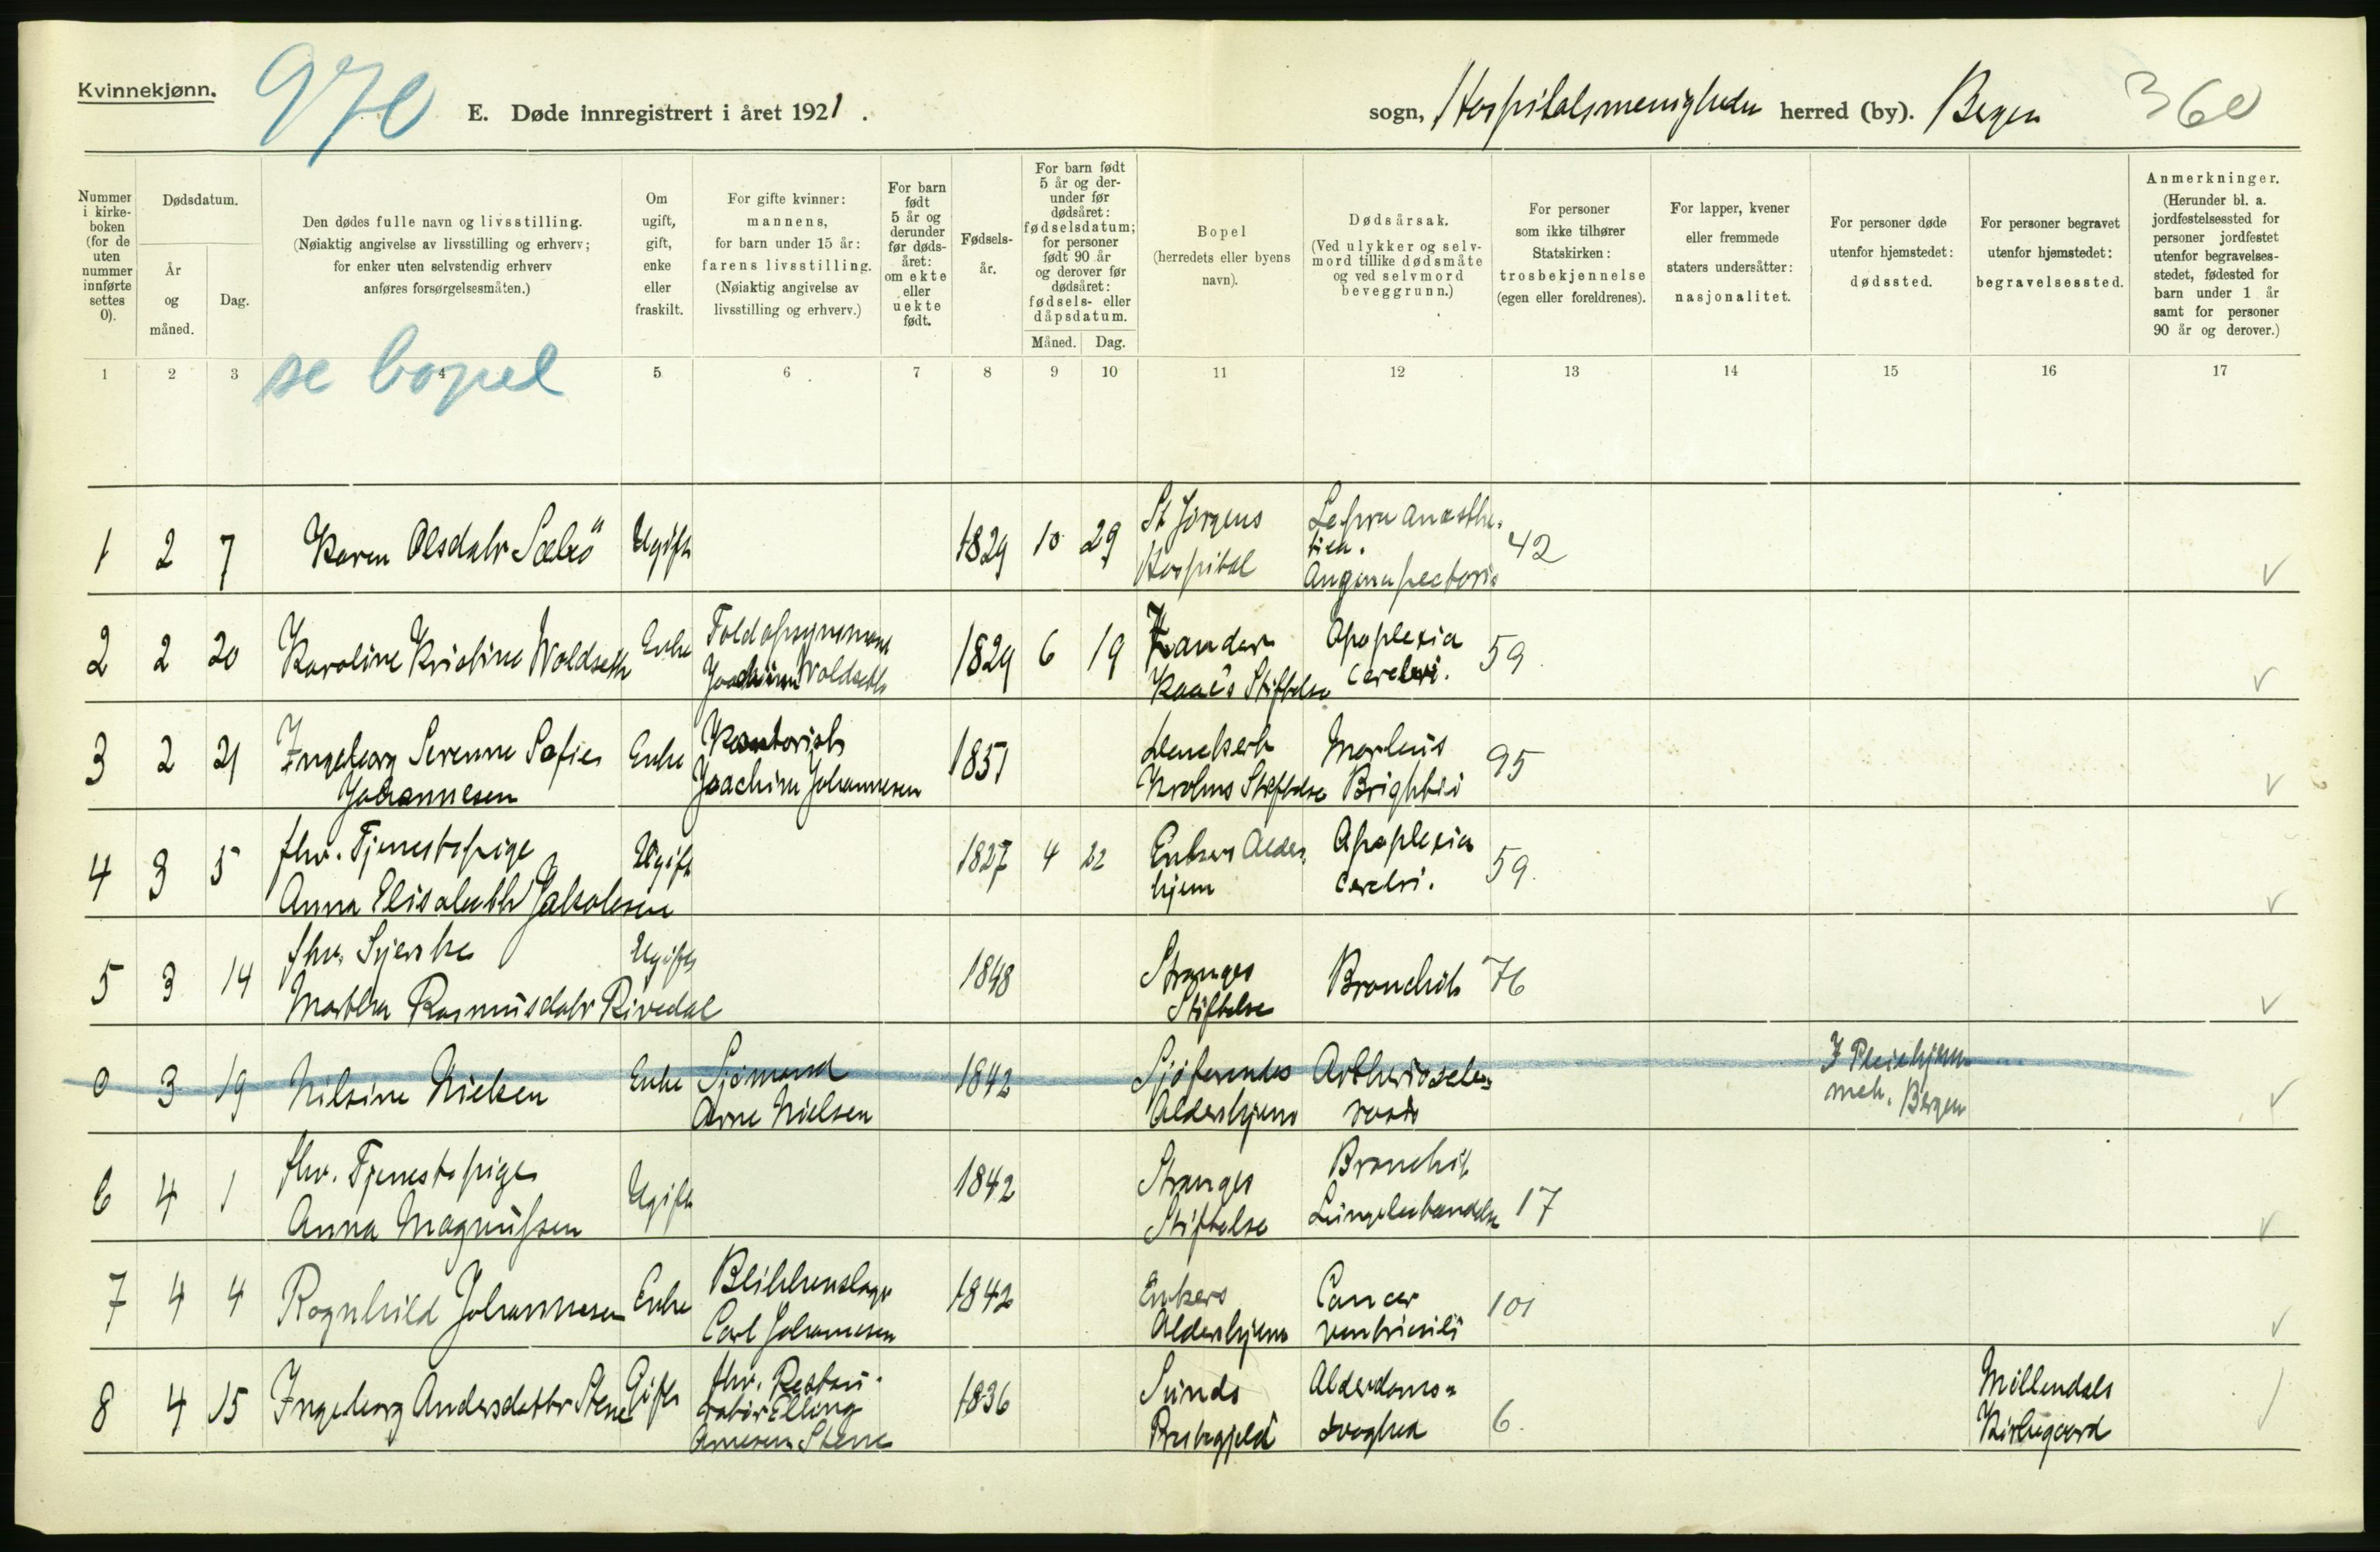 Kvinnekjønn.
970
E. Døde innregistrert i året 1921.
sogn, Hospitalsmenigheden herred (by). Bergen
360
Nummer i kirkeboken (for de uten nummer innførte settes 0).
Dødsdatum.
År og måned.
Dag.
Den dødes fulle navn og livsstilling.
(Nøiaktig angivelse av livsstilling og erhverv;
for enker uten selvstendig erhverv
anføres forsørgelsesmåten.)
Om ugift, gift, enke eller fraskilt.
For gifte kvinner:
mannens,
for barn under 15 år:
farens livsstilling.
(Nøiaktig angivelse av
livsstilling og erhverv.)
For barn født 5 år og derunder før dødsåret: om ekte eller uekte født.
Fødselsår.
For barn født 5 år og derunder før dødsåret: fødselsdatum; for personer født 90 år og derover før dødsåret: fødsels- eller dåpsdatum.
Måned. Dag.
Bopel
(herredets eller byens
navn).
Dødsårsak.
(Ved ulykker og selvmord tillike dødsmåte
og ved selvmord
beveggrunn.)
For personer
som ikke tilhører
Statskirken:
trosbekjennelse
(egen eller foreldrenes).
For lapper, kvener
eller fremmede
staters undersåtter:
nasjonalitet.
For personer døde
utenfor hjemstedet:
dødssted.
For personer begravet
utenfor hjemstedet:
begravelsessted.
Anmerkninger.
(Herunder bl. a.
jordfestelsessted for
personer jordfestet
utenfor begravelsesstedet, fødested for
barn under 1 år
samt for personer
90 år og derover.)
1 2 3 4 5 6 7 8 9 10 11 12 13 14 15 16 17
se bopel
1 2 7 Karen Olsdatr Sæleö Ugift 1829 10 29 St Jørgens Hospital Lepra anæsthetica. Angina pectoris 42
2 2 20 Karoline Kristine Woldseth Enke Toldopsynsmand Joachim Woldseth 1829 6 19 Zander Kaaes Stiftelse Apoplexia cerebri. 59
3 2 21 Ingeborg Serenne Sofie Johannesen Enke Kontorist Joachim Johannesen 1851 Krohns Stiftelse Morbus Brightii 95
4 3 5 fhv. Tjenestepige Anna Elisabeth Jakobsen Ugift 1827 4 22 Enkers Aldershjem Apoplexia cerebri. 59.
5 3 14 fhv. Syerske Martha Rasmusdatr Rivedal Ugift 1848 Stranges Stiftelse Bronchit 76
0 3 19 Nilsine Nielsen Enke Sjömand Arne Nielsen 1842 Sjöfarendes Aldershjem Artheriosclerosis I Pleiehjem men. Bergen
6 4 1 fhv. Tjenestepige Anna Magnussen Ugift 1842 Stranges Stiftelse Bronchit Lungebetændelse 17
7 4 4 Ragnhild Johannesen Enke Blikkenslager Carl Johannesen 1842 Enkers Aldershjem Cancer ventriculi 101
8 4 15 Ingeborg Andersdatter Stene Gift fhv. Restauratør Elling Arnesen Stene 1836 Sunds Prestegjeld Alderdomssvaghed 6. Möllendals Kirkegaard